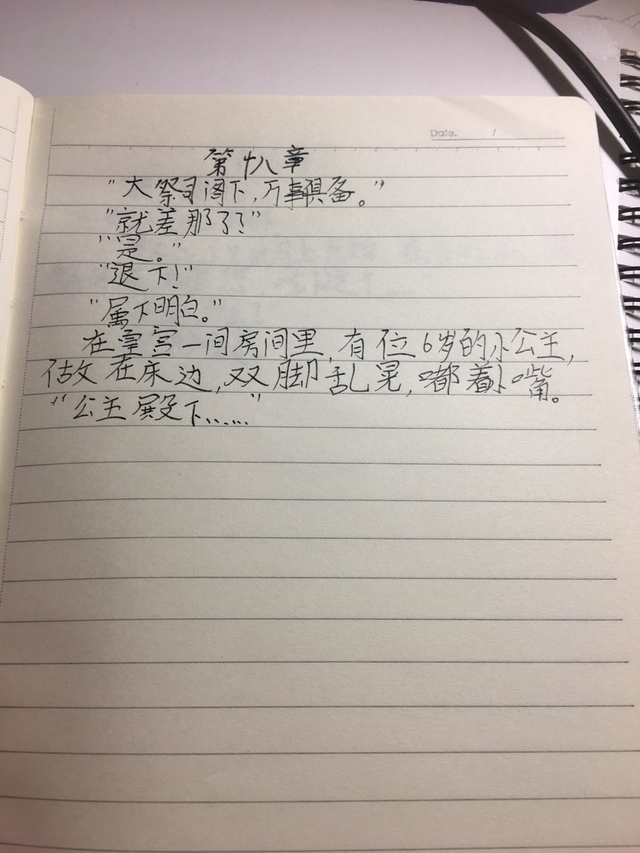 Date. /
第十八章
"大祭司阁下,万事俱备。"
"就差那了?"
"是。"
"退下!"
"属下明白。"
在皇宫一间房间里,有位6岁的小公主,
在床边,双脚乱晃,嘟着小嘴。
"公主殿下……"